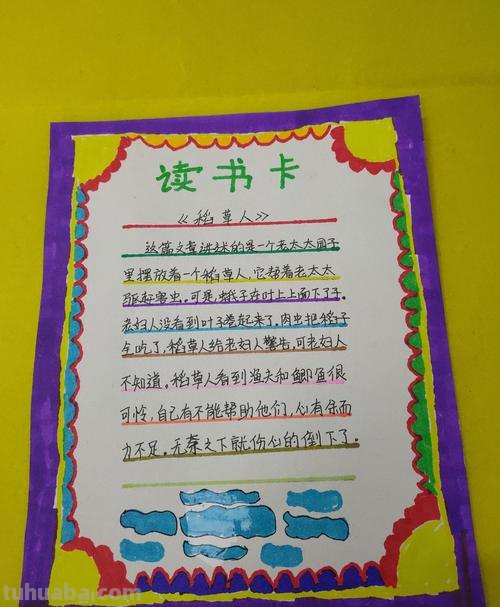 读书卡
《稻草人》
这篇文章讲述的是一个老太太园子
里摆放着一个稻草人,它帮着老太太
驱赶害虫。可是蛾子在叶上上面下了子。
老妇人没看到叶子卷起来了,肉虫把稻子
全吃了,稻草人给老妇人警告,可老妇人
不知道。稻草人看到渔夫和鲫鱼很
可怜,自己有不能帮助他们,心有余而
力不足。无奈之下就伤心的倒下了。
tuhuaba.com